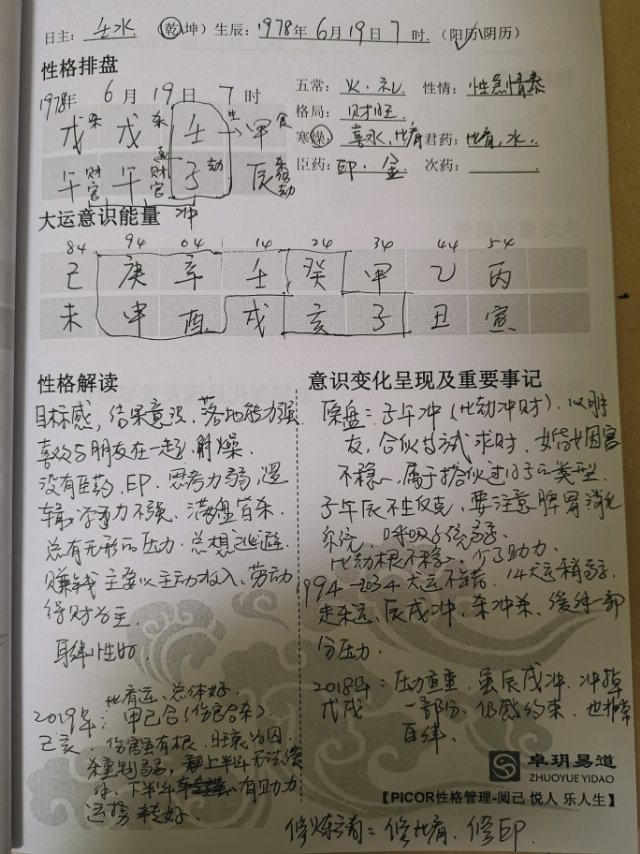 日主: 壬水 (乾/坤) 生辰: 1978年6月19日7时. (阳历\阴历)
性格排盘
1978年 6月 19日 7时
戊杀 戊杀 壬 生 甲食
午财宫 午财宫 子劫 辰杀
冲
五常: 火、礼 性情: 性急情恭
格局: 财旺.
寒燥: 喜水、比肩 君药: 比肩、水.
臣药: 印、金 次药:
大运意识能量
84 94 04 14 24 34 44 54
己 庚 辛 壬 癸 甲 乙 丙
未 申 酉 戌 亥 子 丑 寅
性格解读
目标感,结果意识、落地能力强
喜欢与朋友在一起,解燥.
没有臣药、印、思考力弱、逻
辑学习力不强、满盘官杀.
总有无形的压力、总想逃避.
赚钱主要以主动收入、劳动
得财为主.
耳缘性好.
比肩运、总体好.
2019年: 甲己合(伤官合杀)
己亥.
下半年 有助力
运势 转好.
意识变化呈现及重要事记
原盘: 子午冲(比劫冲财). 以朋
友,合伙方式求财、婚姻因宫
不稳、属于搭伙过日子的类型.
子午辰不生反克、要注意脾胃消化
系统、呼吸系统弱.
比劫根不稳、少了助力.
1994-2034大运不错、14大运稍弱.
走杀运、辰戌冲、杀冲杀、缓解一部
分压力.
2018年: 压力重重、虽辰戌冲、冲掉
戊戌 一部份、仍感约束、也非常
自律.
卓玥易道
ZHUOYUE YIDAO
【PICOR性格管理-阅己 悦人 乐人生】
修炼方向=修比肩、修印.